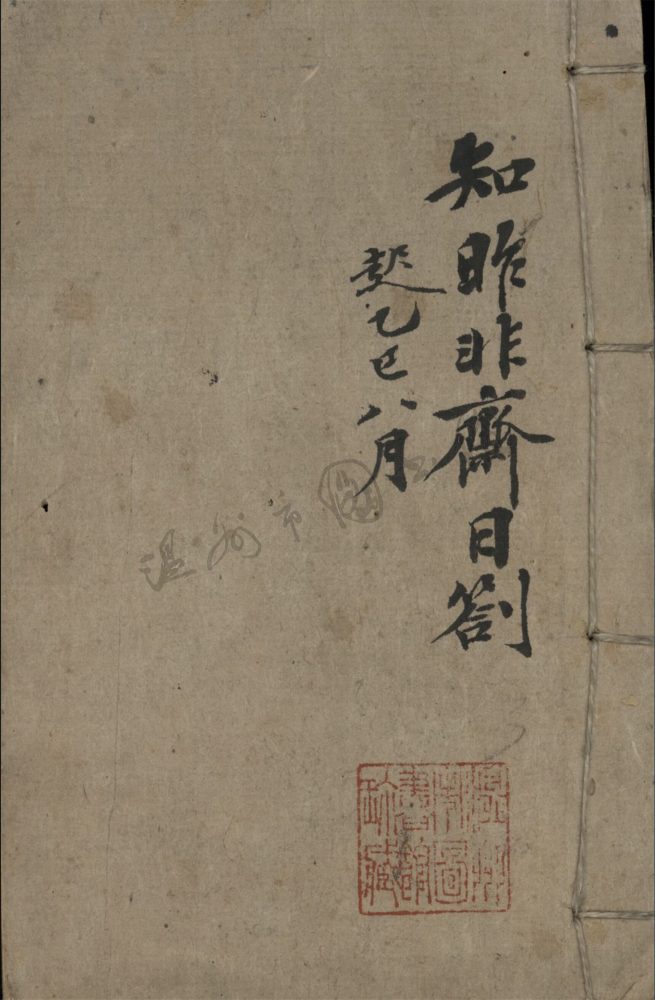 知昨非齋日劄
起乙巳八月
溫州市圖
溫州市圖書館珍藏